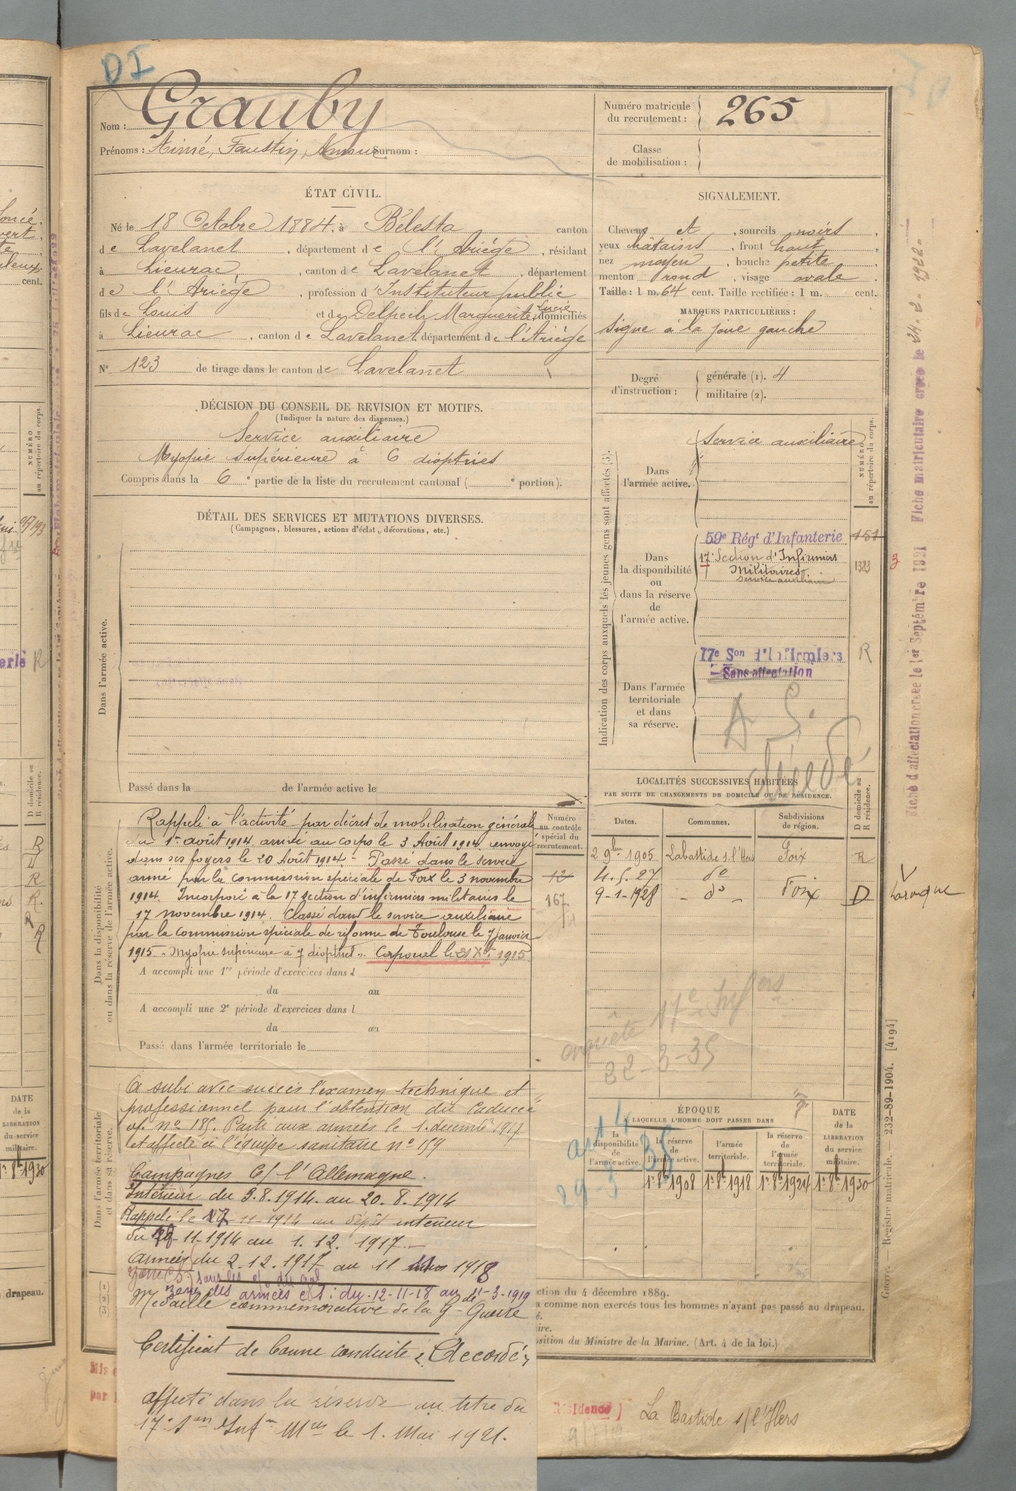 DI
Nom : Grauby
Prénoms : Aimé, Faustin, Surnom :
Numéro matricule du recrutement : 265
Classe de mobilisation :
ÉTAT CIVIL.
Né le 18 Octobre 1884, à Bélesta canton
de Lavelanet, département de l'Ariège, résidant
à Lieurac, canton de Lavelanet, département
de l'Ariège, profession d'Instituteur public
fils de Louis et de Delpech Marguerite, Lucie domiciliés
à Lieurac, canton de Lavelanet, département de l'Ariège
N° 123 de tirage dans le canton de Lavelanet
SIGNALEMENT.
Cheveux et, sourcils noirs,
yeux châtains, front haut,
nez moyen, bouche petite,
menton rond, visage ovale.
Taille : 1 m. 64 cent. Taille rectifiée : 1 m. cent.
MARQUES PARTICULIÈRES :
Signe à la joue gauche
Degré d'instruction : générale (1). 4
militaire (2).
DÉCISION DU CONSEIL DE REVISION ET MOTIFS.
(Indiquer la nature des dispenses.)
Service auxiliaire
Myopie supérieure à 6 dioptries
Compris dans la 6e partie de la liste du recrutement cantonal ( e portion).
DÉTAIL DES SERVICES ET MUTATIONS DIVERSES.
(Campagnes, blessures, actions d'éclat, décorations, etc.)
Dans l'armée active.
Passé dans la de l'armée active le
Indication des corps auxquels les jeunes gens sont affectés (3).
NUMÉRO au répertoire du corps.
Dans l'armée active.
Service auxiliaire
Dans la disponibilité ou dans la réserve de l'armée active.
59e Régt d'Infanterie 151
17e Section d'Infirmiers 1323
Militaires
Service auxiliaire
3
Dans l'armée territoriale et dans sa réserve.
17e Son d'Infirmiers R
Sans affectation
Fiche d'affectation créée le 1er Septembre 1921 Fiche matriculaire créée le
LOCALITÉS SUCCESSIVES HABITÉES
PAR SUITE DE CHANGEMENTS DE DOMICILE OU DE RÉSIDENCE.
Dates. Communes. Subdivisions de région. D domicile ou R résidence.
2 9bre 1905 Labastide s. l'Hers Foix R
4.5.27 do
9-1-1928 - do - Foix D Laroque
Numéro au contrôle spécial du recrutement.
167
Dans la disponibilité ou dans la réserve de l'armée active.
Rappelé à l'activité par décret de mobilisation générale
du 1er août 1914, arrivé au corps le 3 Août 1914, renvoyé
dans ses foyers le 20 Août 1914. - Passé dans le service
armé par la commission spéciale de Foix le 3 novembre
1914. Incorporé à la 17 Section d'infirmiers militaires le
17 novembre 1914. Classé dans le service auxiliaire
par la Commission spéciale de réforme de Toulouse le 7 janvier
1915 - Myopie supérieure à 7 dioptries. Caporal le 21 Xbre 1915
A accompli une 1re période d'exercices dans l
du au
A accompli une 2e période d'exercices dans l
du au
Passé dans l'armée territoriale le
enquête 17e Infers
22-3-35
Dans l'armée territoriale et dans sa réserve.
A subi avec succès l'examen technique et
professionnel pour l'obtention du Caducée
n° 185. Parti aux armées le 1. décembre 1917
et affecté à l'équipe sanitaire n° 159
Campagnes C/ l'Allemagne.
Intérieur du 3.8.1914 au 20.8.1914
Rappelé le 17-11-1914 au dépôt intérieur
du -11-1914 au 1.12.1917
Armées du 2.12.1917 au 11 1918
zone des armées du 12-11-18 au 1-3-1919
Médaille commémorative de la Gde Guerre
Certificat de bonne conduite "Accordé"
affecté dans la réserve au titre du
17e Son Infers Mres le 1. Mai 1921.
ÉPOQUE
À LAQUELLE L'HOMME DOIT PASSER DANS
la disponibilité de l'armée active. la réserve de l'armée active. l'armée territoriale. la réserve de l'armée territoriale. DATE de la LIBÉRATION du service militaire.
1er 8bre 1908 1er 8bre 1918 1er 8bre 1924 1er 8bre 1930
art 4
29-3 35
ction du 4 décembre 1889.
a comme non exercés tous les hommes n'ayant pas passé au drapeau.
osition du Ministre de la Marine. (Art. 4 de la loi.)
Résidence
La Bastide s/l'Hers
Registre matricule. 232-89-1904. [4194]
DATE de la LIBÉRATION du service militaire.
1er 8bre 1930
drapeau.